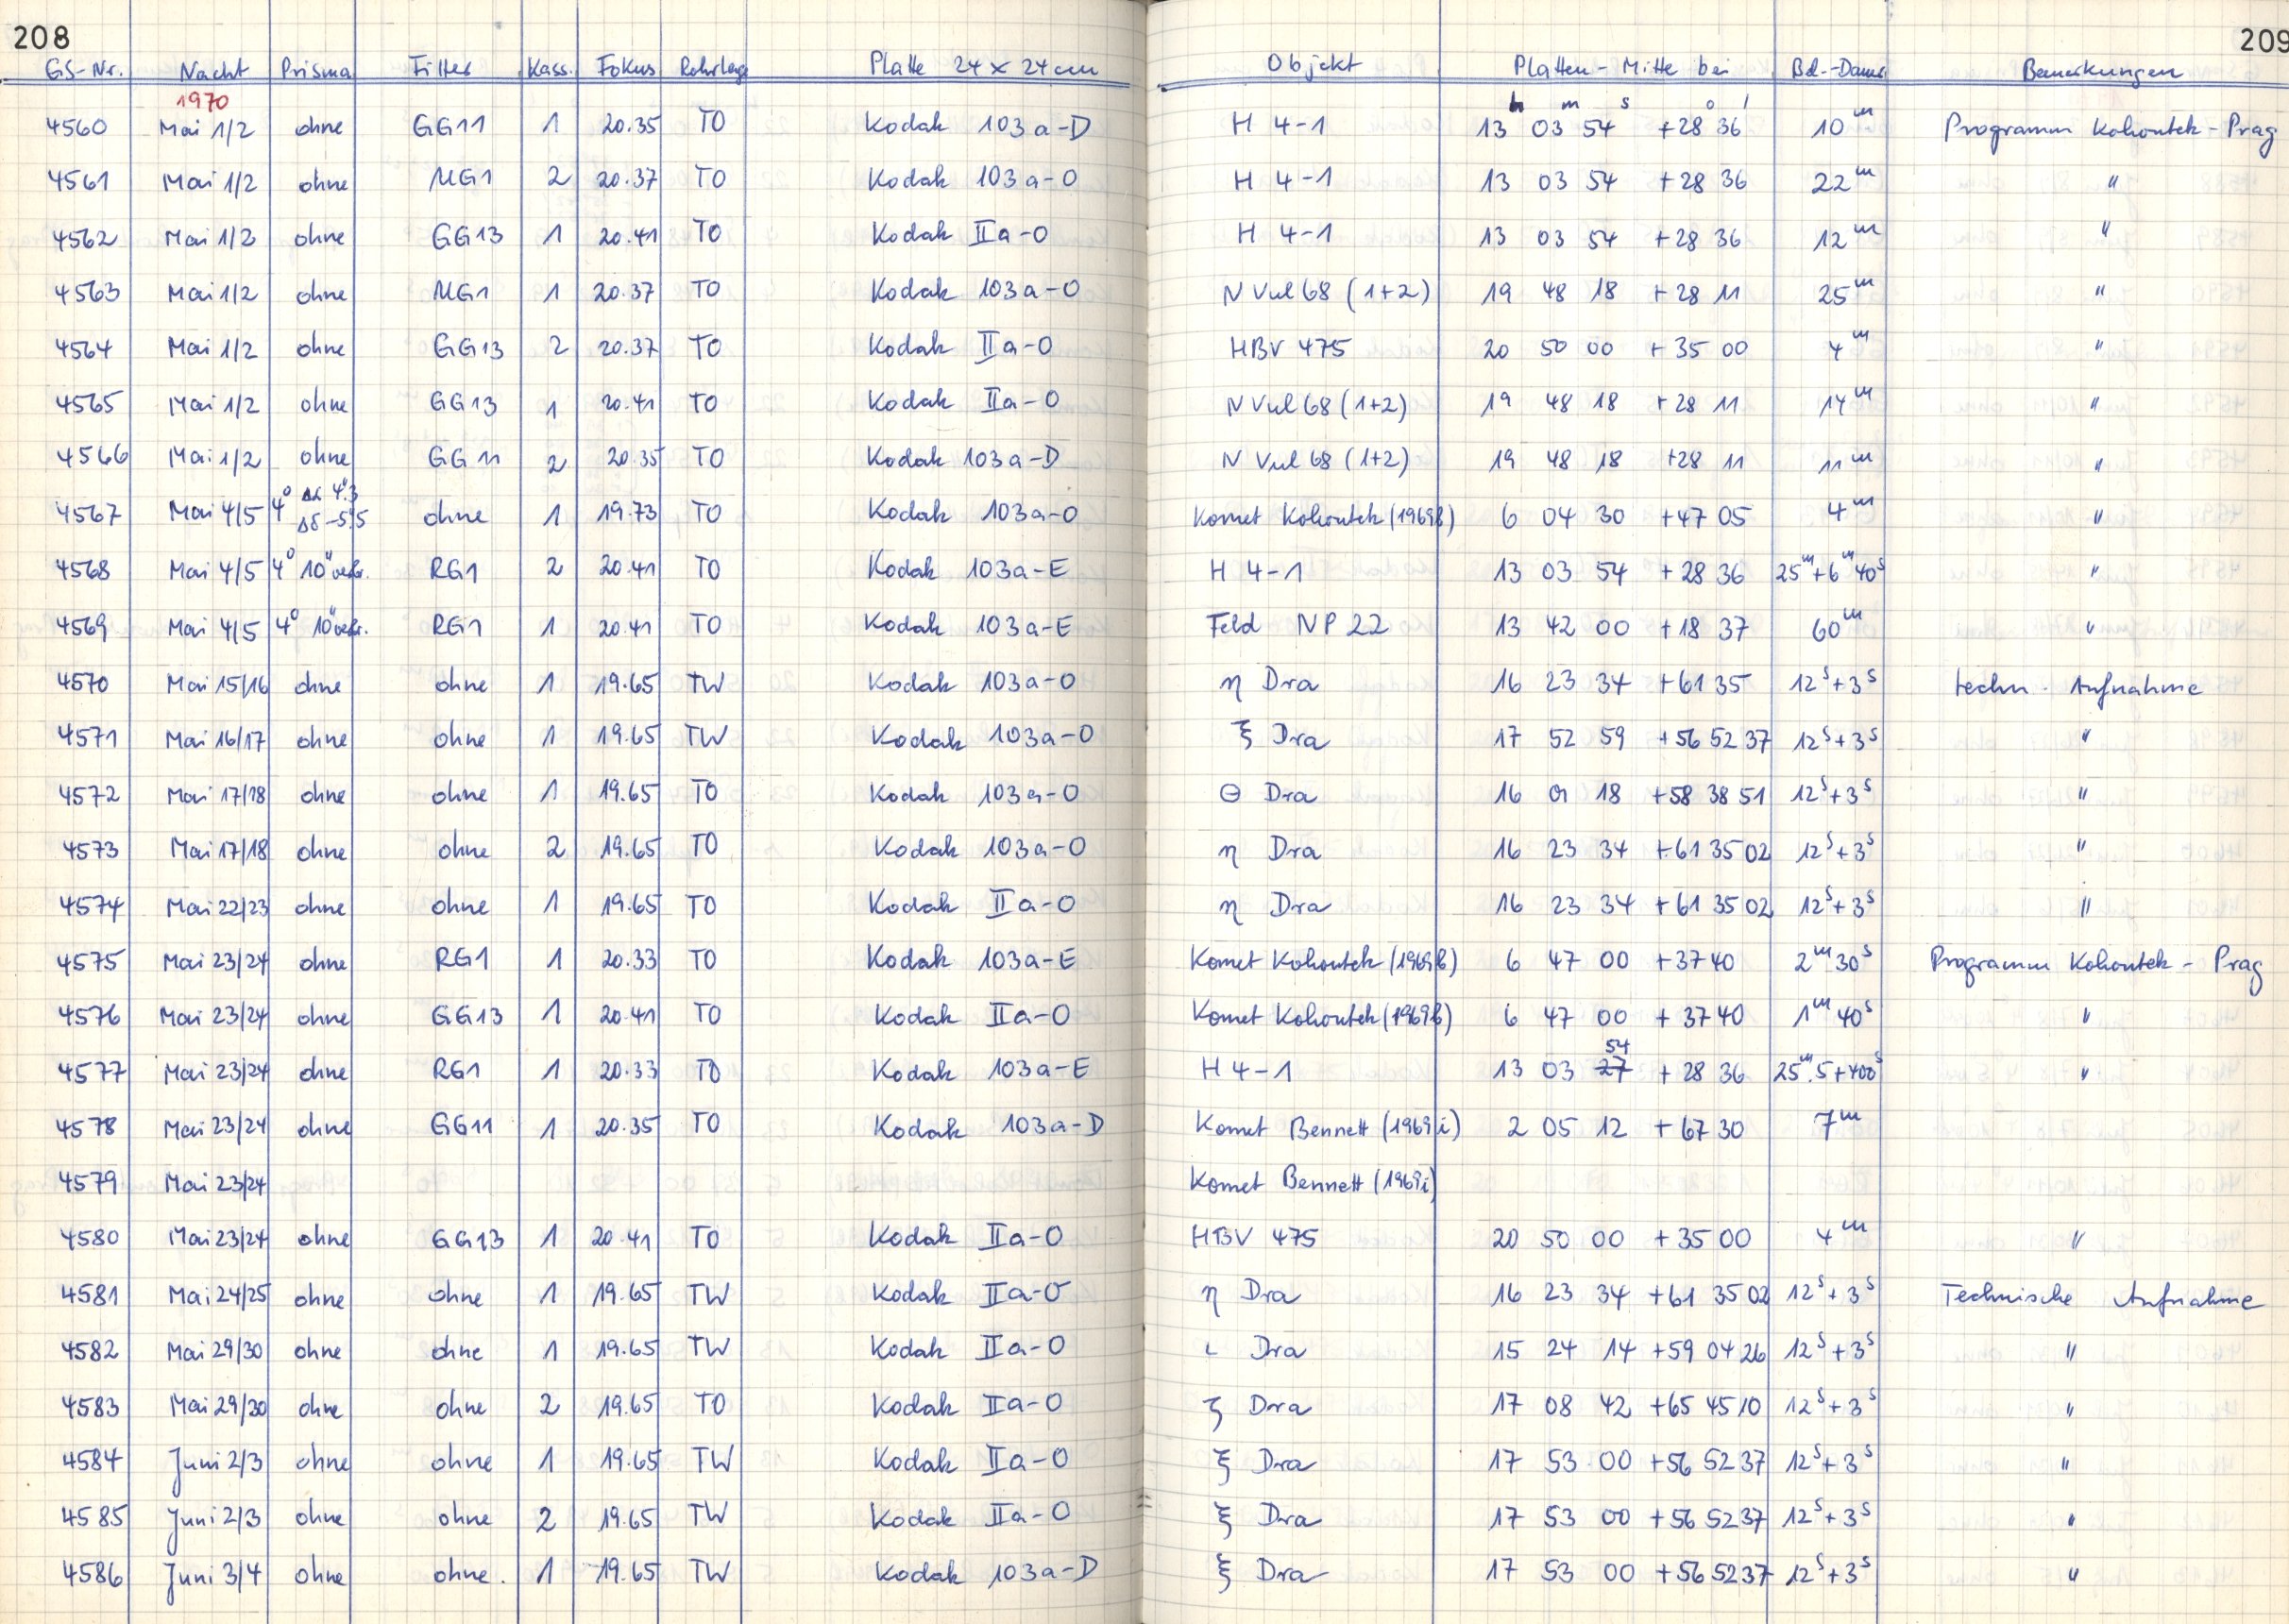 208 209
GS-Nr. Nacht Prisma Filter Kass. Fokus Rohrlage Platte 24 x 24 cm Objekt Platten-Mitte bei Bel.-Dauer Bemerkungen
1970 h m s ° '
4560 Mai 1/2 ohne GG11 1 20.35 TO Kodak 103a-D H 4-1 13 03 54 +28 36 10m Programm Kohoutek-Prag
4561 Mai 1/2 ohne UG1 2 20.37 TO Kodak 103a-O H 4-1 13 03 54 +28 36 22m "
4562 Mai 1/2 ohne GG13 1 20.41 TO Kodak IIa-O H 4-1 13 03 54 +28 36 12m "
4563 Mai 1/2 ohne UG1 1 20.37 TO Kodak 103a-O N Vul 68 (1+2) 19 48 18 +28 11 25m "
4564 Mai 1/2 ohne GG13 2 20.37 TO Kodak IIa-O HBV 475 20 50 00 +35 00 4m "
4565 Mai 1/2 ohne GG13 1 20.41 TO Kodak IIa-O N Vul 68 (1+2) 19 48 18 +28 11 14m "
4566 Mai 1/2 ohne GG11 2 20.35 TO Kodak 103a-D N Vul 68 (1+2) 19 48 18 +28 11 11m "
4567 Mai 4/5 4° Δα 4°.3 Δδ -5°.5 ohne 1 19.73 TO Kodak 103a-O Komet Kohoutek (1969b) 6 04 30 +47 05 4m "
4568 Mai 4/5 4° 10" verbr. RG1 2 20.41 TO Kodak 103a-E H 4-1 13 03 54 +28 36 25m+6m40s "
4569 Mai 4/5 4° 10" verbr. RG1 1 20.41 TO Kodak 103a-E Feld NP 22 13 42 00 +18 37 60m "
4570 Mai 15/16 ohne ohne 1 19.65 TW Kodak 103a-O η Dra 16 23 34 +61 35 12s+3s techn. Aufnahme
4571 Mai 16/17 ohne ohne 1 19.65 TW Kodak 103a-O ξ Dra 17 52 59 +56 52 37 12s+3s "
4572 Mai 17/18 ohne ohne 1 19.65 TO Kodak 103a-O Θ Dra 16 01 18 +58 38 51 12s+3s "
4573 Mai 17/18 ohne ohne 2 19.65 TO Kodak 103a-O η Dra 16 23 34 +61 35 02 12s+3s "
4574 Mai 22/23 ohne ohne 1 19.65 TO Kodak IIa-O η Dra 16 23 34 +61 35 02 12s+3s "
4575 Mai 23/24 ohne RG1 1 20.33 TO Kodak 103a-E Komet Kohoutek (1969b) 6 47 00 +37 40 2m30s Programm Kohoutek - Prag
4576 Mai 23/24 ohne GG13 1 20.41 TO Kodak IIa-O Komet Kohoutek (1969b) 6 47 00 +37 40 1m40s "
4577 Mai 23/24 ohne RG1 1 20.33 TO Kodak 103a-E H 4-1 13 03 27 54 +28 36 25m.5+400s "
4578 Mai 23/24 ohne GG11 1 20.35 TO Kodak 103a-D Komet Bennett (1969i) 2 05 12 +67 30 7m
4579 Mai 23/24 Komet Bennett (1969i)
4580 Mai 23/24 ohne GG13 1 20.41 TO Kodak IIa-O HBV 475 20 50 00 +35 00 4m "
4581 Mai 24/25 ohne ohne 1 19.65 TW Kodak IIa-O η Dra 16 23 34 +61 35 02 12s+3s Technische Aufnahme
4582 Mai 29/30 ohne ohne 1 19.65 TW Kodak IIa-O ι Dra 15 24 14 +59 04 26 12s+3s "
4583 Mai 29/30 ohne ohne 2 19.65 TO Kodak IIa-O ζ Dra 17 08 42 +65 45 10 12s+3s "
4584 Juni 2/3 ohne ohne 1 19.65 TW Kodak IIa-O ξ Dra 17 53 00 +56 52 37 12s+3s "
4585 Juni 2/3 ohne ohne 2 19.65 TW Kodak IIa-O ξ Dra 17 53 00 +56 52 37 12s+3s "
4586 Juni 3/4 ohne ohne. 1 19.65 TW Kodak 103a-D ξ Dra 17 53 00 +56 52 37 12s+3s "